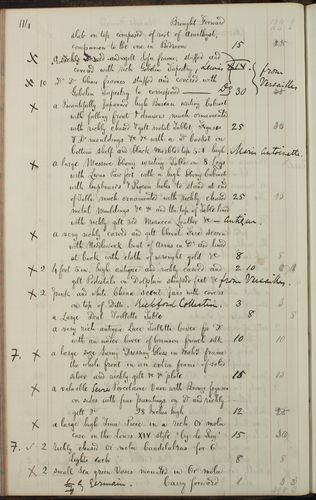 111 Brought Forward
slab on top composed of root of Amethyst,
companion to the one in Bedroom 15
X a richly carved and gilt Sofa frame, stuffed and
covered with rich Gobelin Tapestry Louis XIV from
X 10 Do Do Chair frames stuffed and covered with Versailles
Gobelin Tapestry to correspond Do 30
X a Beautifully Japanned high Bureau writing Cabinet
with falling front & drawers much ornamented
with richly chased & gilt metal Tablet, Figures
& Do mouldings &c &c with a Do basket on
bottom shelf and black marble top 3.4 high Marie Antoinette
X a large Massive Ebony writing Table on 8 Legs
with Lions Paw feet with a high Ebony Cabinet
with cupboards & Pigeon holes to stand at end
of Table, much ornamented with richly chased 25
metal mouldings &c &c and the top of Table lined
with richly gilt red Morocco Leather &c Antique
X a very richly carved and gilt Chair Tree screen
with Needlework Coat of Arms in Do and lined
at back with cloth of wrought gold &c 8
X 2 4 feet 5 in. high antique and richly carved and 2 10
gilt Pedestals on Dolphin shaped feet &c from Versailles
X 2 Junk and white China scent jars with covers
on top of Ditto. Beckford Collection 3
a Large Deal Toilette Table 8
a very rich antique Lace Toilette Cover for Do
with an under Cover of Crimson french silk 10
7. X a large size Swing Dressing Glass in Wal.t frame
the whole front in an extra frame of solid
silver and richly gilt &c &c plate 15
X a valuable Sevres Porcelaine Vase with Bronze figures
on sides with fine paintings on Do and richly
gilt &c 28 Inches high 12
X a large high Time Piece in a rich Or molu
Case in the Louis XIV style "by Le Roy" 15
7. 2 richly chased Or molu Candelabras for 6
lights each 8
X 2 small sea green Vases mounted in Or molu
by Germain. Carry forward 1